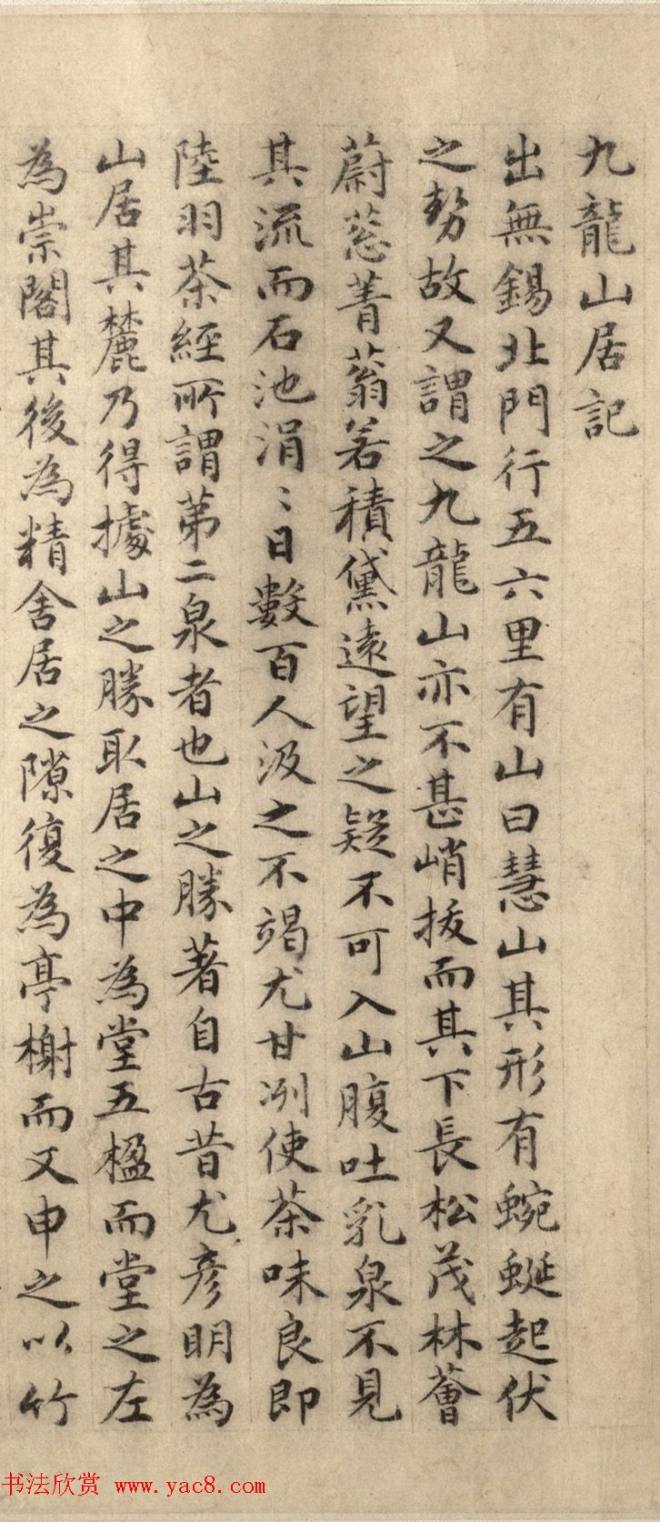 九龍山居記
出無錫北門行五六里有山曰慧山其形有蜿蜒起伏
之勢故又謂之九龍山亦不甚峭拔而其下長松茂林薈
蔚蔥菁蓊若積黛遠望之疑不可入山腹吐乳泉不見
其流而石池涓〻日數百人汲之不竭尤甘冽使茶味良即
陸羽茶經所謂第二泉者也山之勝著自古昔尤彥明為
山居其麓乃得據山之勝取居之中為堂五楹而堂之左
為崇閣其後為精舍居之隙復為亭榭而又申之以竹
书法欣赏 www.yac8.com